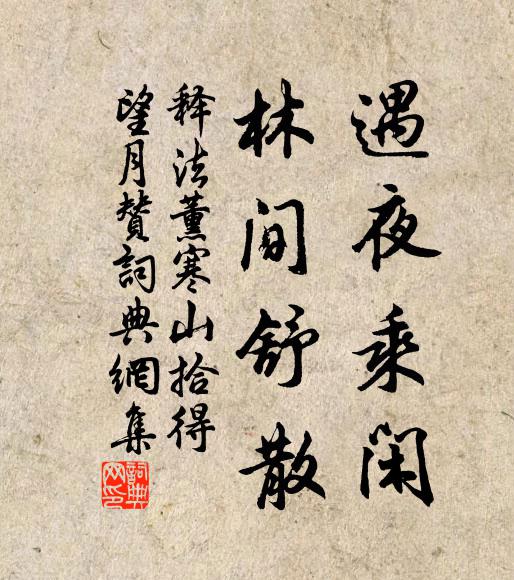 遇夜乘闲
林间舒散
释法薰寒山拾得
望月赞詞典網集
詞典网印